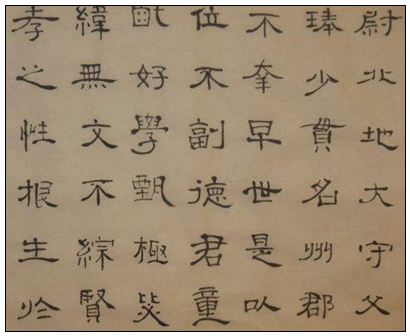 尉北地大守父
琫少貫名州郡
不幸早世是以
位不副德君童
齔好學甄極毖
緯無文不綜賢
孝之性根生於